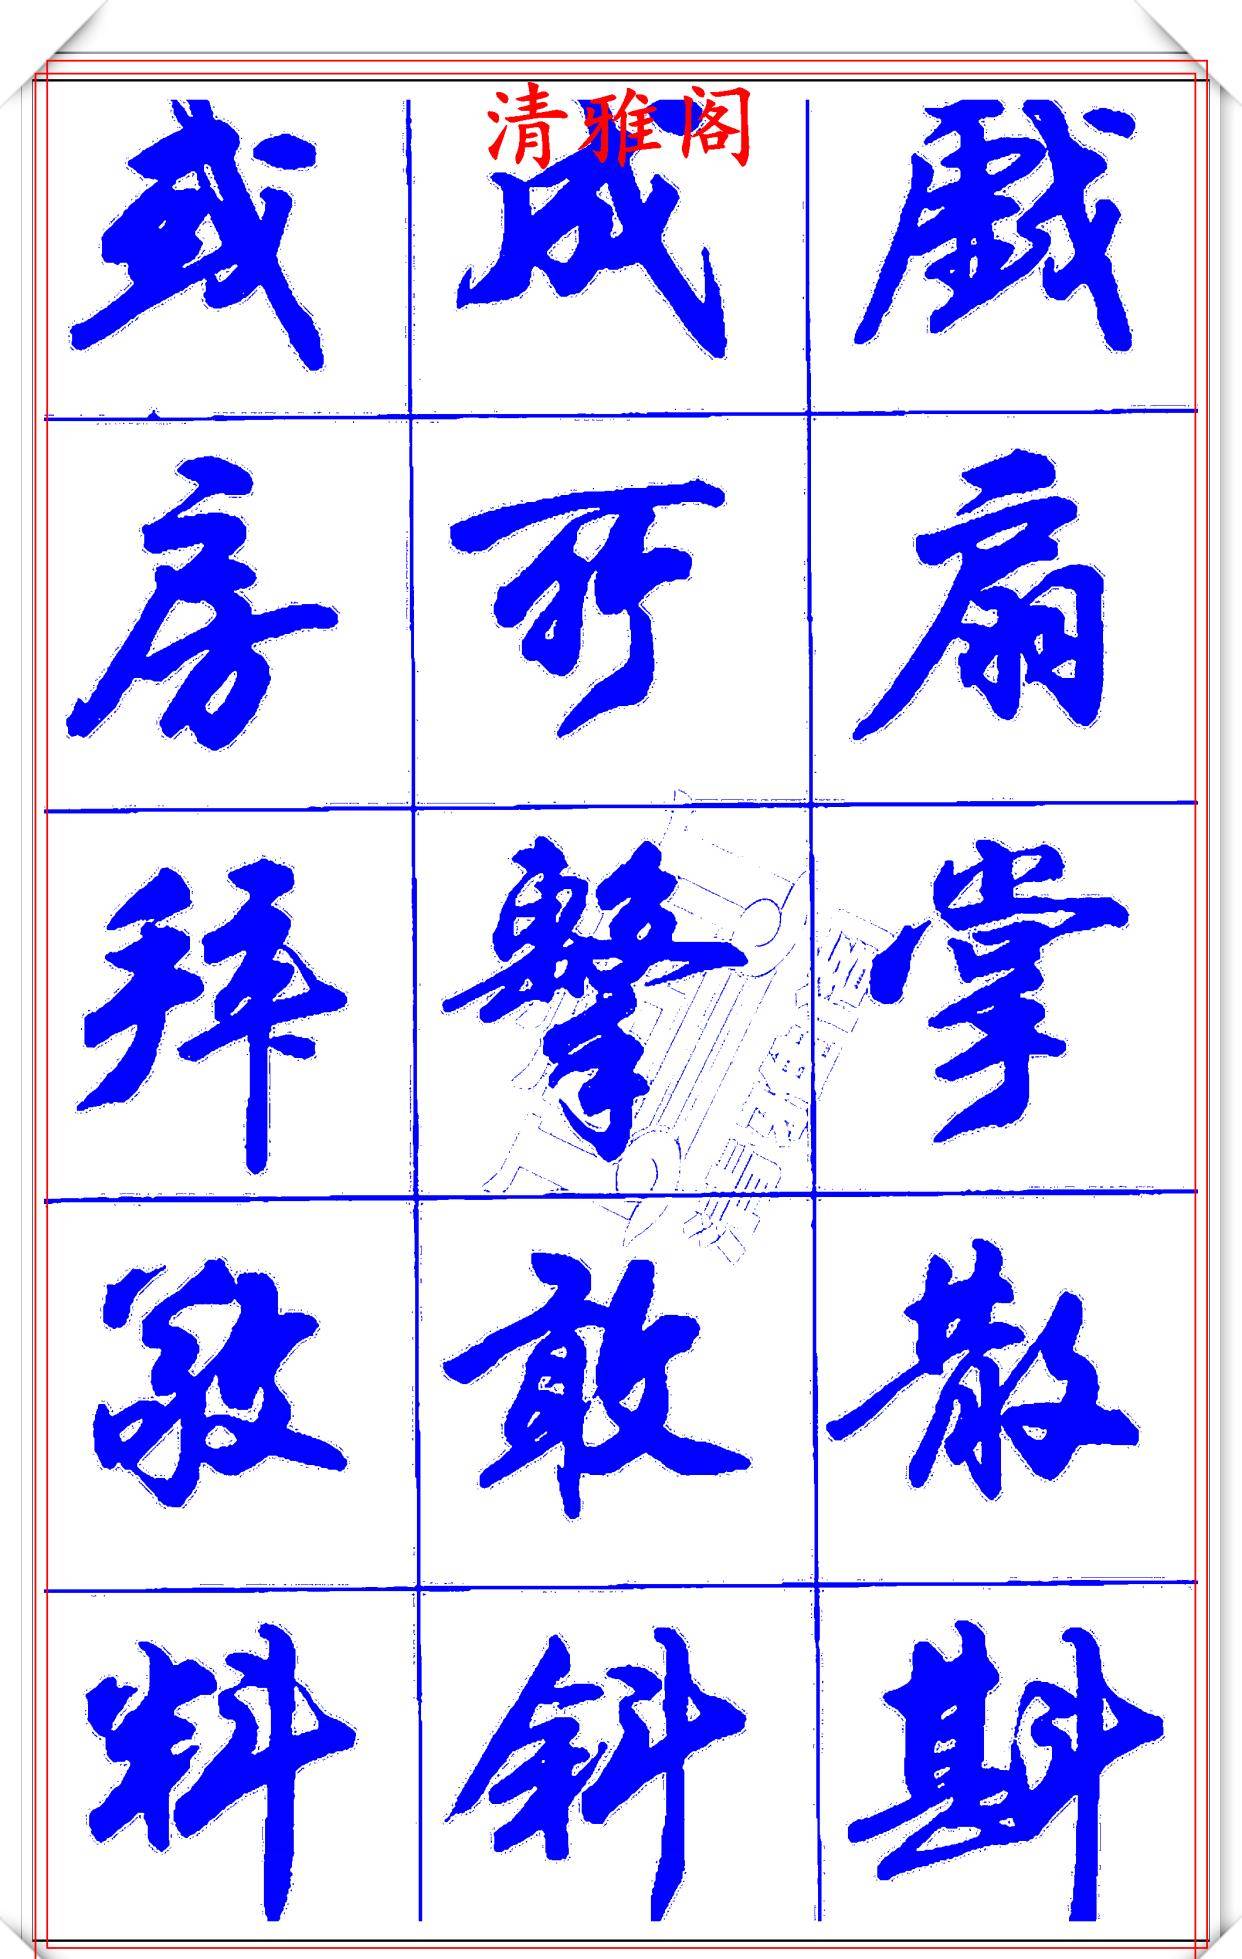 清雅阁
或 成 戲
房 所 扇
拜 擊 掌
敬 敢 散
料 斜 斟